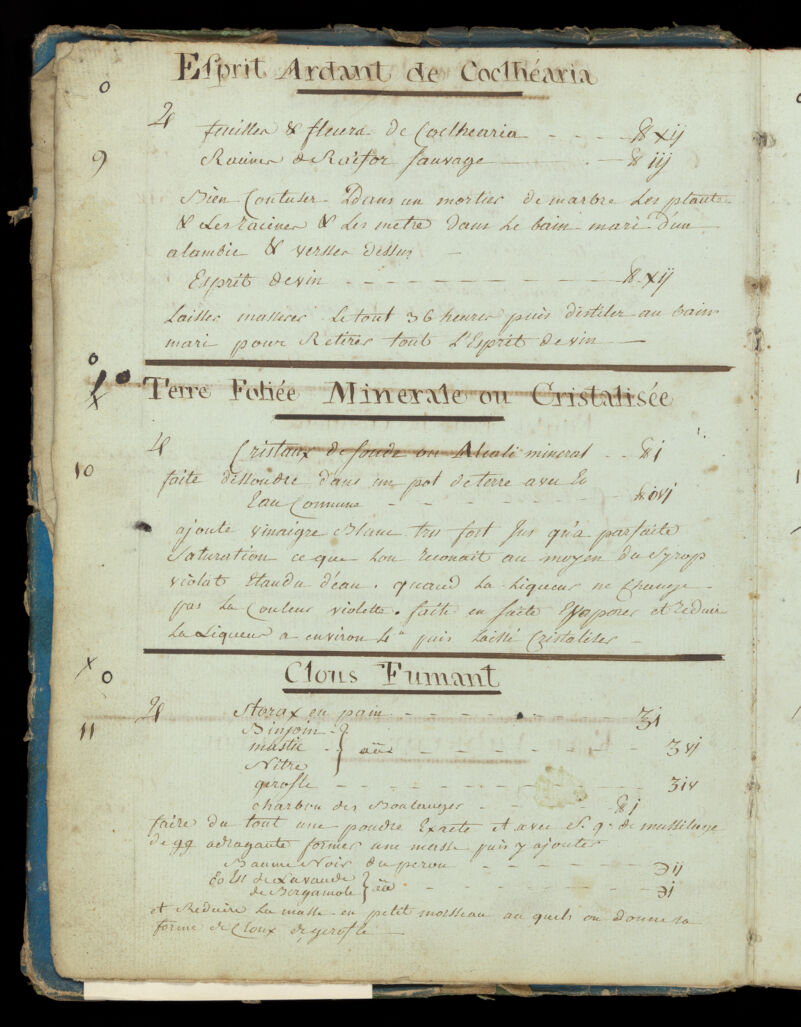 Esprit Ardant de Coclhéaria
o
♃
9
feuilles & fleurs de Coclhearia - - - - ℔ xij
Racines de Raifor sauvage - ℔ iij
Bien Contuser Dans un mortier de marbre Les plante
& Les racines & Les metre dans Le bain mari d'un
alambic & verser dessus
Esprit de vin - - - - - - - ℔ xij
Laisser masserer Le tout 36 heures puis distiler au bain
mari pour Retirer tout L'Esprit de vin
o
Terre Foliée Minerale ou Cristalisée
x
♃ Cristaux de soude ou Alcali mineral - - ℔ i
10
faite dissoudre dans un pot de terre avec
Eau Commune - - - - - - -
ajoute vinaigre Blanc tres fort Jus qu'a parfaite
Saturation ce que Lon reconait au moyen du Syrop
violat Etandu d'eau. quand La Liqueur ne Change
pas La Couleur violette. faite en suite Evaporer et reduire
La Liqueur a environ puis laissé Cristaliser
x o
Clous Fumant
♃ Storax en pain - - - - - - ʒi
11
Binjoin
mastic } aũ - - - - - - ʒvj
Nitre
gerofle - - - - - - - ʒiv
charbon des Boulanger - - - - ℔ i
faire du tout une poudre Exacte et avec S. q. de mussilage
de gg adragante former une masse puis y ajouter
Baume Noir du perou - - - - ℈ij
Es de Lavande
de Bergamote } aũ - - - - ℈i
et Reduire La masse en petit morsseau au quels on donne la
forme de Cloux de gerofle